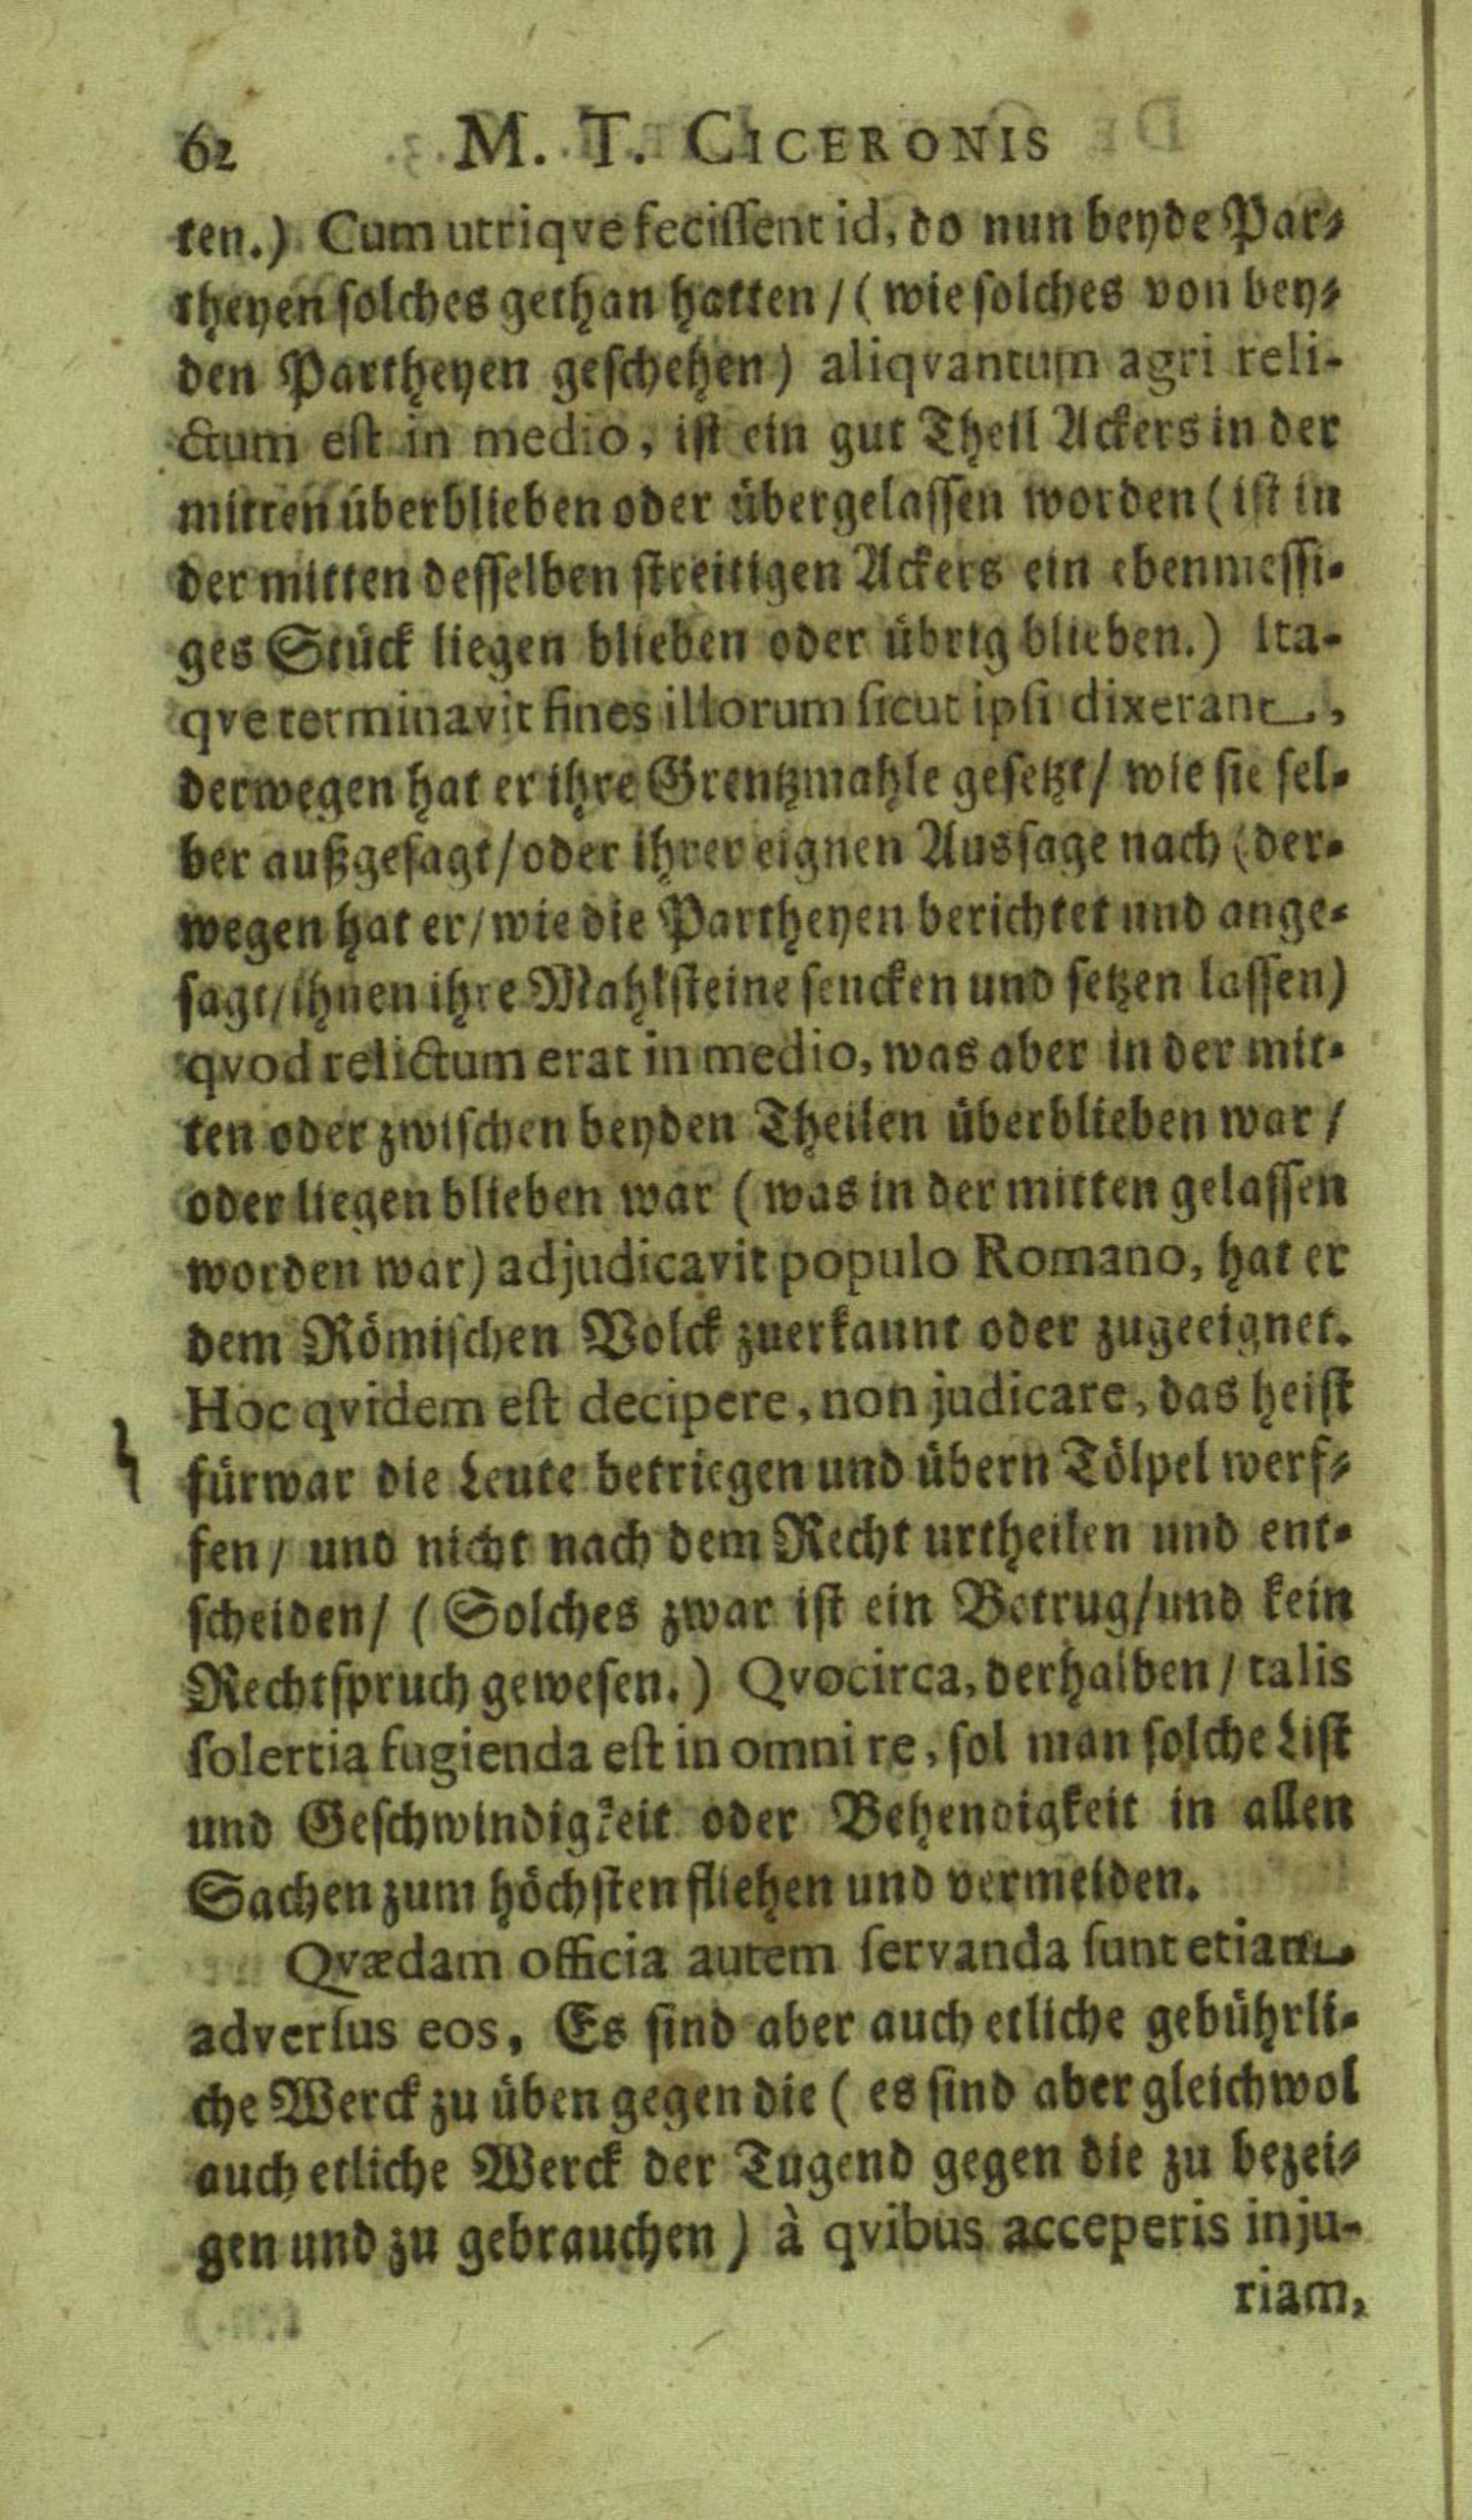 62 M. T. CICERONIS
ten.) Cum utriqve fecissent id, do nun beyde Par-
theyen solches gethan hatten / ( wie solches von bey-
den Partheyen geschehen) aliqvantum agri reli-
ctum est in medio, ist ein gut Theil Ackers in der
mitten überblieben oder übergelassen worden ( ist in
der mitten desselben streitigen Ackers ein ebenmessi-
ges Stück liegen blieben oder übrig blieben.) Ita-
qve terminavit fines illorum sicut ipsi dixerant,
derwegen hat er ihre Grentzmahle gesetzt / wie sie sel-
ber außgesagt / oder ihrer eignen Aussage nach (der-
wegen hat er / wie die Partheyen berichtet und ange-
sagt / ihnen ihre Mahlsteine sencken und setzen lassen)
qvod relictum erat in medio, was aber in der mit-
ten oder zwischen beyden Theilen überblieben war /
oder liegen blieben war ( was in der mitten gelassen
worden war) adjudicavit populo Romano, hat er
dem Römischen Volck zuerkannt oder zugeeignet.
Hoc qvidem est decipere, non judicare, das heist
fürwar die Leute betriegen und übern Tölpel werf-
fen / und nicht nach dem Recht urtheilen und ent-
scheiden / ( Solches zwar ist ein Betrug / und kein
Rechtspruch gewesen.) Qvocirca, derhalben / talis
solertia fugienda est in omni re, sol man solche List
und Geschwindigkeit oder Behendigkeit in allen
Sachen zum höchsten fliehen und vermeiden.
Qvædam officia autem servanda sunt etiam
adversus eos, Es sind aber auch etliche gebührli-
che Werck zu üben gegen die ( es sind aber gleichwol
auch etliche Werck der Tugend gegen die zu bezei-
gen und zu gebrauchen ) à qvibus acceperis inju-
riam,